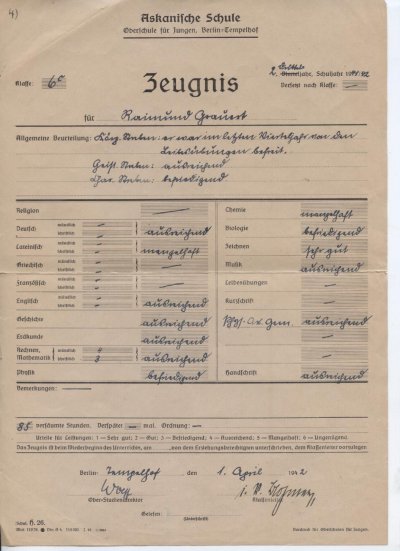 4)
Askanische Schule
Oberschule für Jungen, Berlin-Tempelhof
Klasse: 6c
Zeugnis
2. Schuljahr 1941/42
Versetzt nach Klasse: —
für Raimund Grauert
Allgemeine Beurteilung: Körp. Streben: er war im letzten Vierteljahr von den
Leibesübungen befreit.
Geist. Streben: ausreichend
Char. Streben: befriedigend
Religion —
Deutsch mündlich — schriftlich — ausreichend
Lateinisch mündlich — schriftlich — mangelhaft
Griechisch mündlich schriftlich —
Französisch mündlich schriftlich —
Englisch mündlich — schriftlich — ausreichend
Geschichte ausreichend
Erdkunde ausreichend
Rechnen, Mathematik mündlich schriftlich ausreichend
Physik befriedigend
Chemie mangelhaft
Biologie befriedigend
Zeichnen sehr gut
Musik ausreichend
Leibesübungen —
Kurzschrift —
—
—
Handschrift ausreichend
Bemerkungen: —
85 versäumte Stunden. Verspätet — mal. Ordnung: —
Urteile für Leistungen: 1 = Sehr gut; 2 = Gut; 3 = Befriedigend; 4 = Ausreichend; 5 = Mangelhaft; 6 = Ungenügend.
Das Zeugnis ist beim Wiederbeginn des Unterrichts, am von dem Erziehungsberechtigten unterschrieben, dem Klassenleiter vorzulegen
Berlin-Tempelhof, den 1. April 1942
Ober-Studiendirektor
Klassenleiter
Gelesen:
(Unterschrift)
Schul. H. 26.
Vordruck für Oberschulen für Jungen.